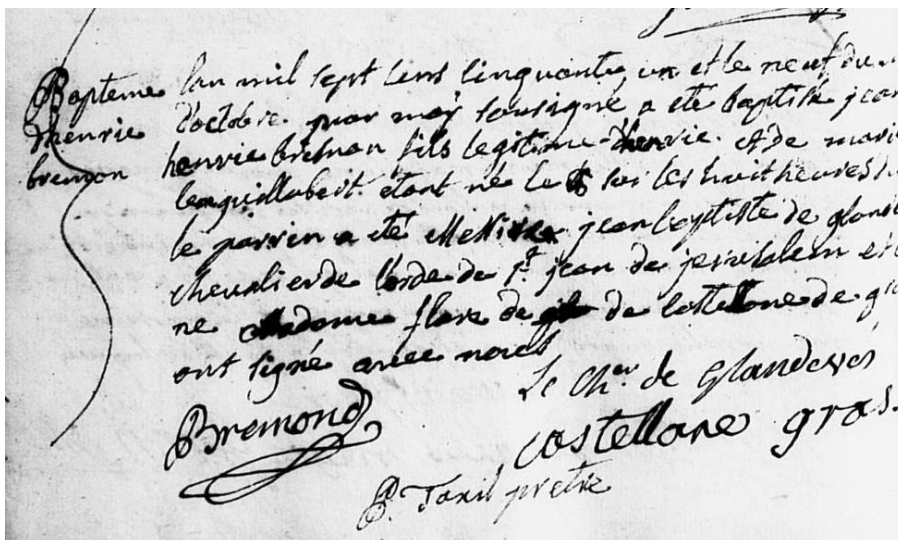 Bapteme
dhenrie
bremon
lan mil sept cens cinquante un et le neuf du
d'octobre par moy sousigné a eté baptisé jean
henrie bremon fils legitime dhenrie et de marie
étant né le soir les huit heures
le parrin a eté Messire jean baptiste de glande
chevalier de l'orde de st jean de jerusalem et
ne Madame flore de de castellane de gra
ont signé avec nous
Le Cher de Glandevés
Bremond castellane gras
P. Taxil pretre